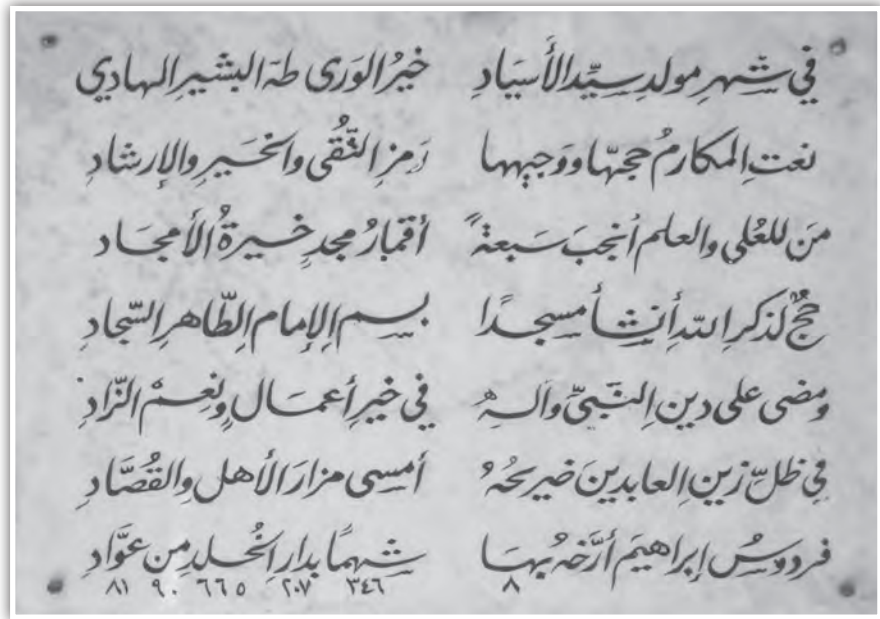 في شهرِ مولدِ سيِّدِ الأَسيَادِ خيرُ الوَرى طهَ البشيرِ الهادي
نعتِ المكارمُ حجهّا ووَجيهها رَمزِ التُّقى والخَيرِ والإرشادِ
مَن للعُلى والعلم أنجبَ سَبعةً أقمارُ مجدٍ خيرةُ الأمجَادِ
حجٌّ لذكرِ اللهِ أنشأ مسجدًا بسمِ الإمامِ الطّاهرِ السّجادِ
ومضى على دينِ النَّبيِّ وآلهِ في خيرِ أعمَالٍ ونِعمْ الزّادِ
في ظلِّ زينِ العابدينَ ضريحُهُ أمسى مزارَ الأهلِ والقُصَّادِ
فردوسُ إبراهيمَ أرَّخهُ بهَا شهمًا بدارِ الخُلدِ مِن عوَّادِ
٨ ٣٤٦ ٢٠٧ ٦٦٥ ٩٠ ٨١